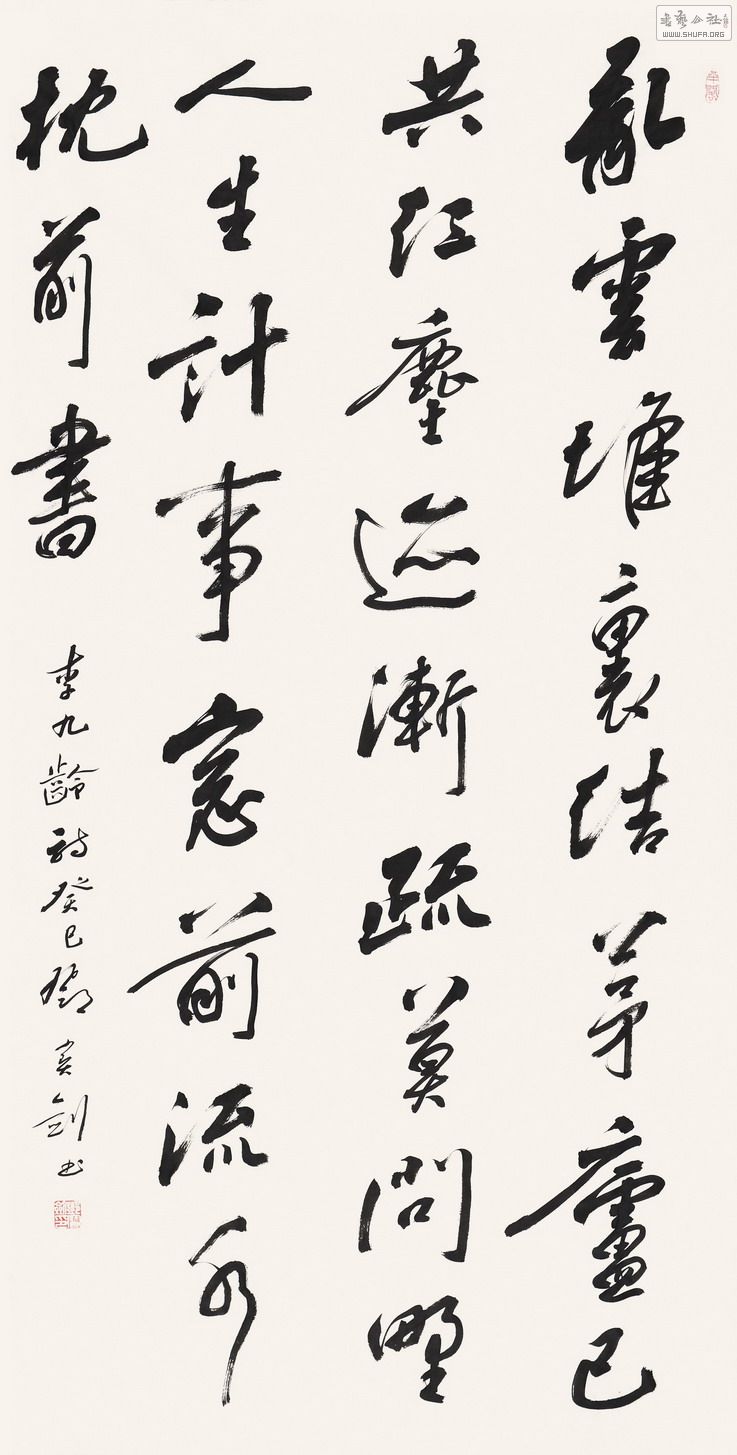 書藝公社
WWW.SHUFA.ORG
亂雲堆裏結茅廬已
共紅塵迹漸疏莫問野
人生計事窓前流水
枕前書
李九齡詩癸巳鄧劍书